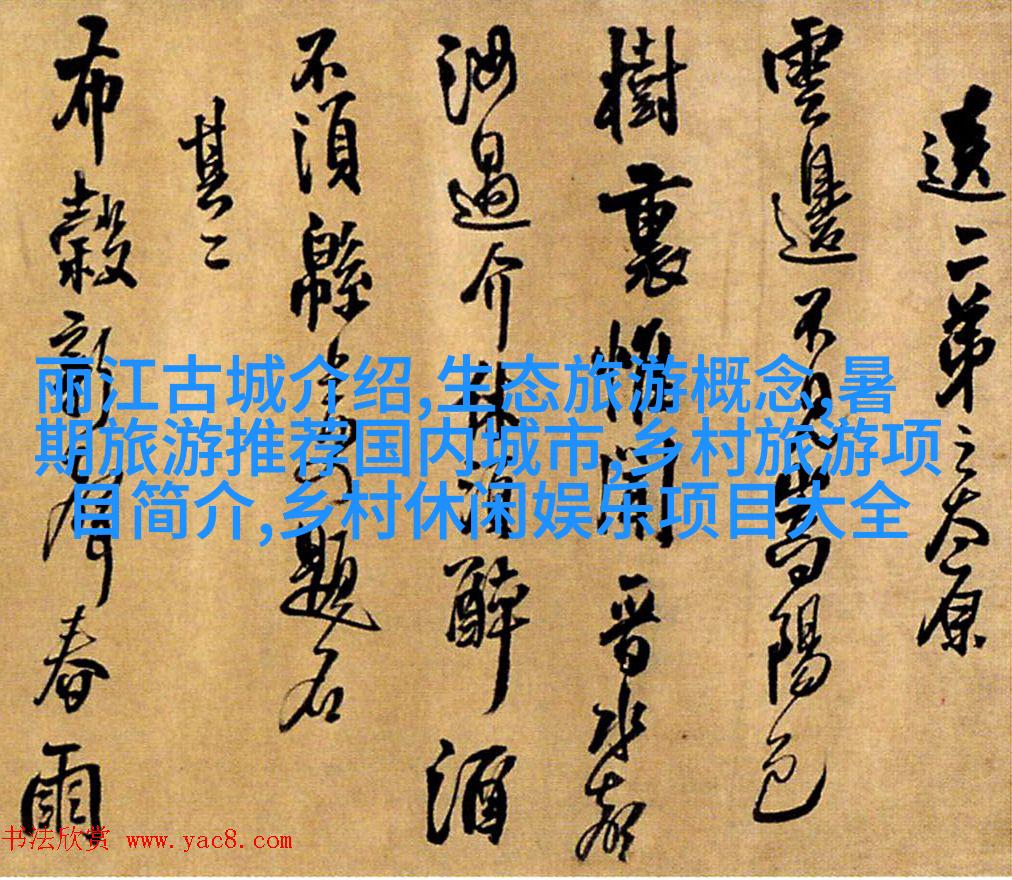 送二弟之太原
雲邊不見嵩陽色
樹裏惟聞晉水聲
汝過介休須醉酒
不須緜上題名
其二
布穀春雨
丽江古城介绍,生态旅游概念,暑
期旅游推荐国内城市,乡村旅游项
目简介,乡村休闲娱乐项目大全
书法欣赏 www.yac8.com